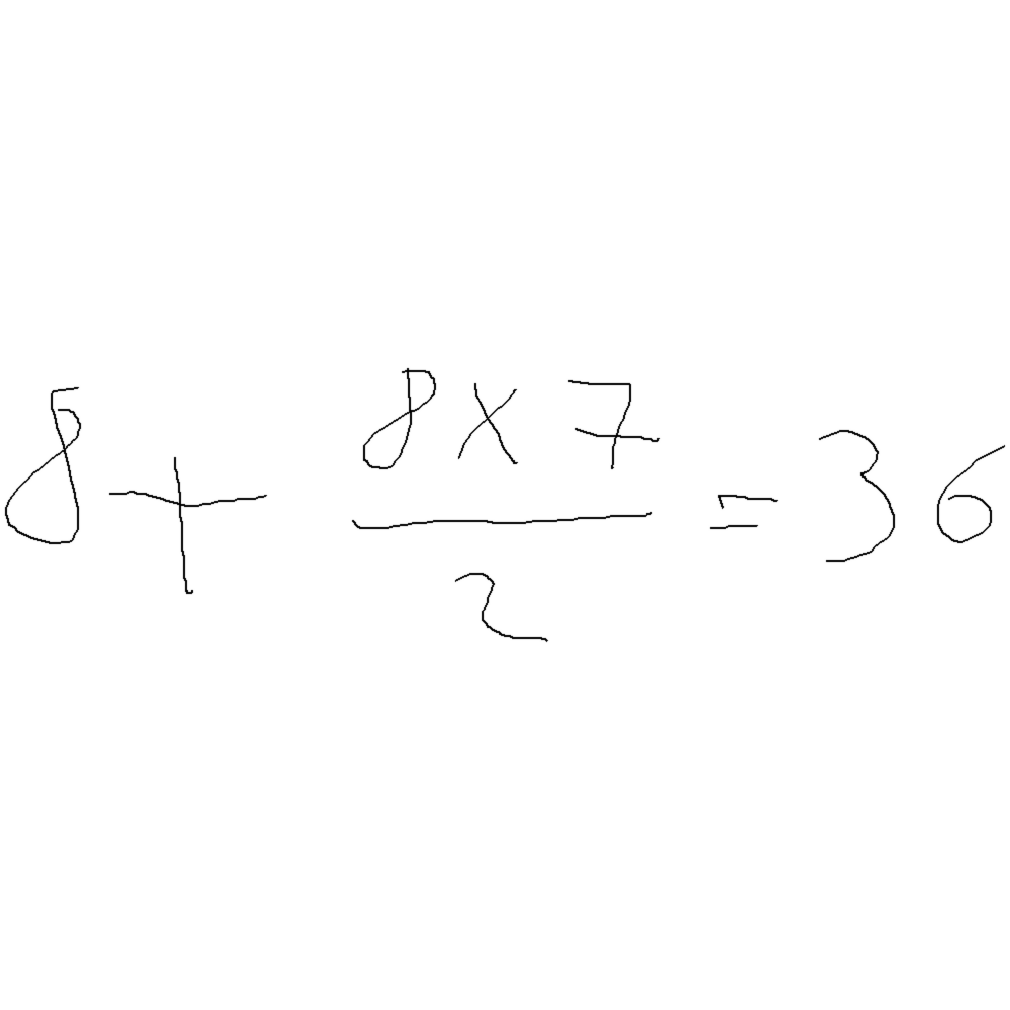 8 + \frac{8 \times 7}{2} = 36